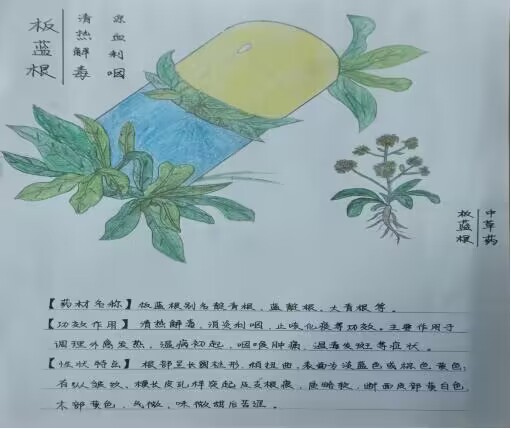 板蓝根
清热解毒
凉血利咽
中草药
板蓝根
【药材名称】板蓝根别名靛青根，蓝靛根，大青根等。
【功效作用】清热解毒，消炎利咽，止咳化痰等功效。主要作用于
调理外感发热，温病初起，咽喉肿痛，温毒发斑等症状。
【性状特点】根部呈长圆柱形，稍扭曲，表面为淡蓝色或棕色黄色；
有纵皱纹，横长皮孔样突起及支根痕，质略软，断面皮部黄白色
木部黄色，气微，味微甜后苦涩。